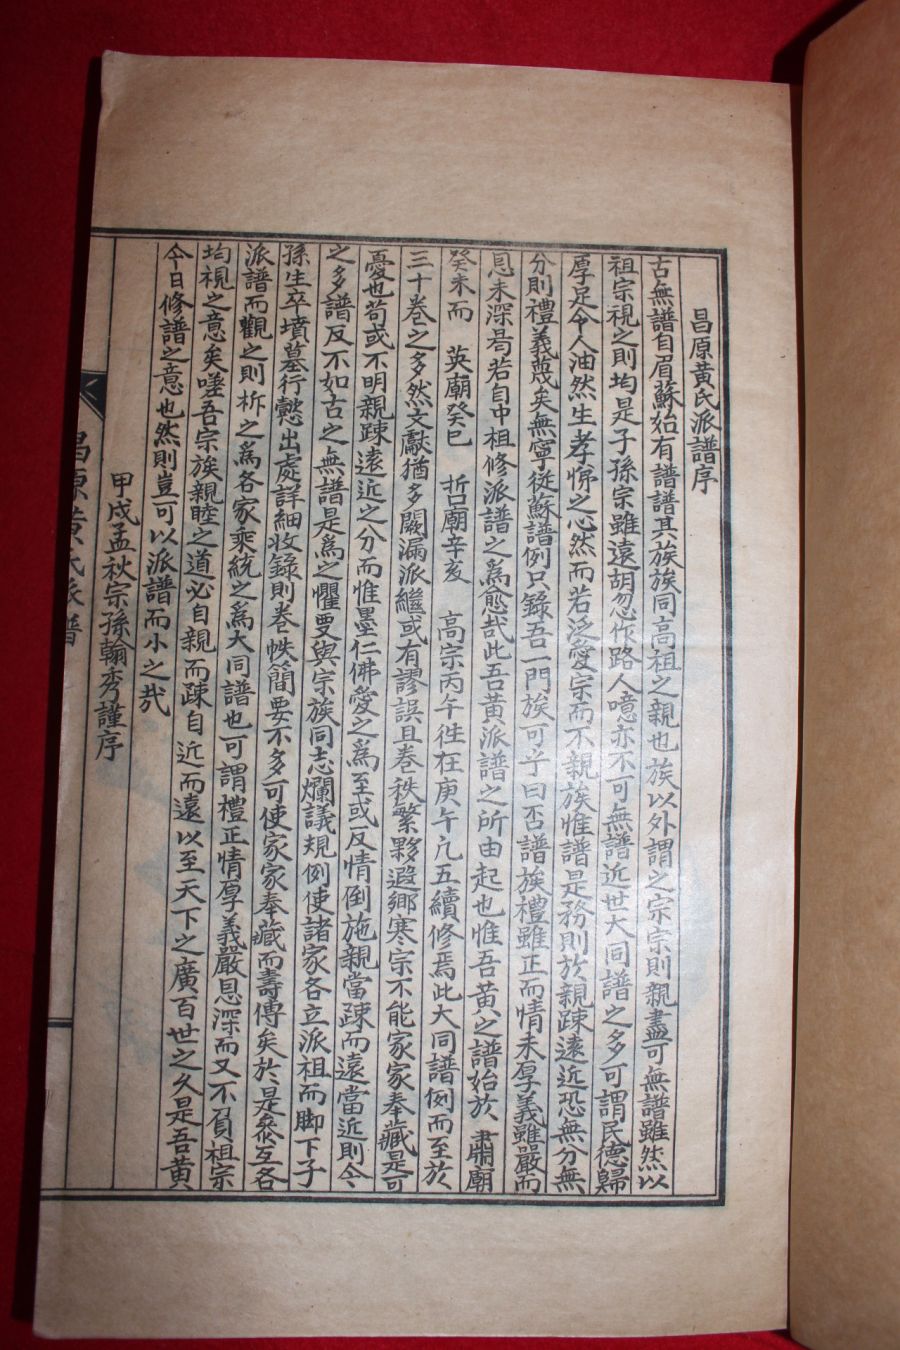 昌原黄氏派譜序
古無譜自眉蘇始有譜譜其族族同高祖之親也族以外謂之宗宗則親盡可無譜雖然以
祖宗視之則均是子孫宗雖遠胡忽作路人噫亦不可無譜近世大同譜之多可謂民德歸
厚足令人油然生孝悌之心然而若泛愛宗而不親族惟譜是務則於親踈遠近恐無分無
分則禮義蔑矣無寧從蘇譜例只錄吾一門族可乎曰否譜族禮雖正而情未厚義雖嚴而
恩未深曷若自中祖修派譜之爲愈哉此吾黄派譜之所由起也惟吾黄之譜始於 肅廟
癸未而 英廟癸巳 哲廟辛亥 高宗丙午徃在庚午凢五續修焉此大同譜例而至於
三十卷之多然文獻猶多闕漏派繼或有謬誤且卷秩繁夥遐鄉寒宗不能家家奉藏是可
憂也苟或不明親踈遠近之分而惟墨仁佛愛之爲至或反情倒施親當踈而遠當近則今
之多譜反不如古之無譜是爲之懼要與宗族同志爛議規例使諸家各立派祖而脚下子
孫生卒墳墓行懿出處詳細收錄則卷帙簡要不多可使家家奉藏而壽傳矣於是發互各
派譜而觀之則柝之爲各家乘統之爲大同譜也可謂禮正情厚義嚴恩深而又不負祖宗
均視之意矣嗟吾宗族親睦之道必自親而踈自近而遠以至天下之廣百世之久是吾黄
今日修譜之意也然則豈可以派譜而小之哉
甲戌孟秋宗孫翰秀謹序
昌原黄氏派譜